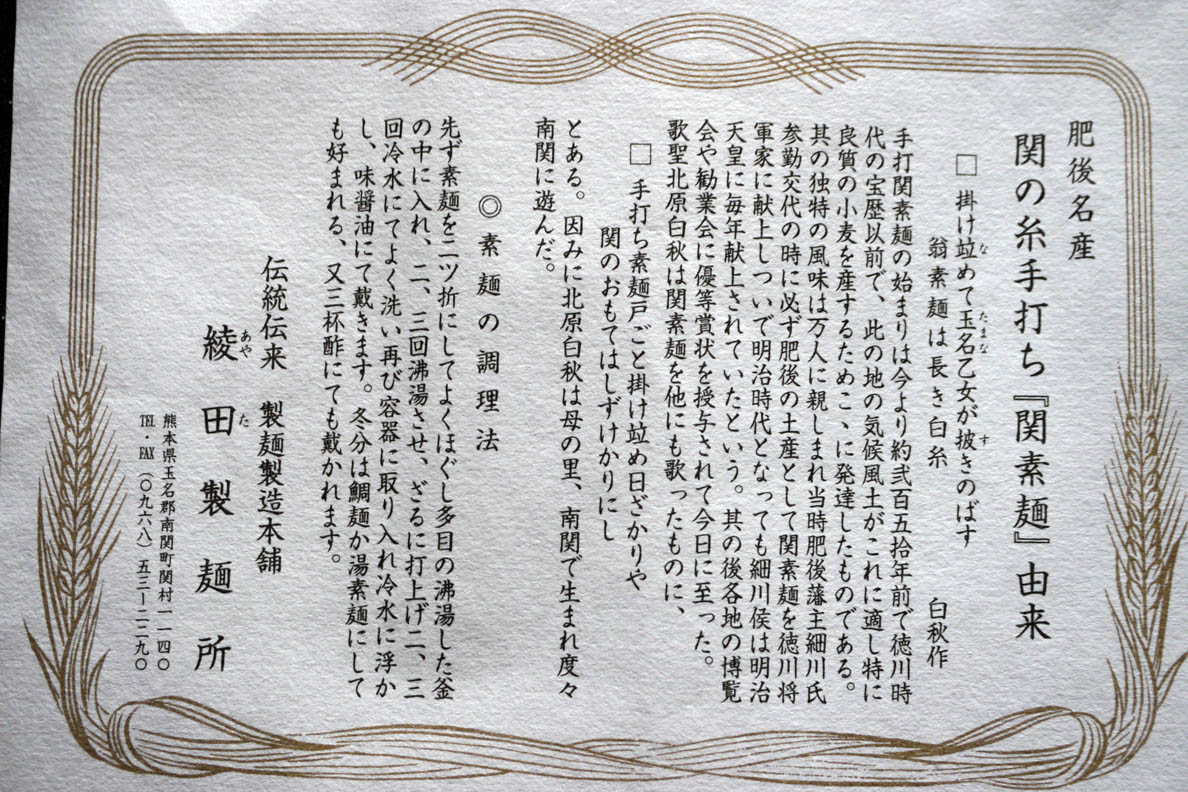 肥後名産
関の糸手打ち『関素麺』由来
□ 掛け竝めて玉名乙女が披きのばす
なたまなす
翁素麺は長き白糸 白秋作
手打関素麺の始まりは今より約弐百五拾年前で徳川時
代の宝歴以前で、此の地の気候風土がこれに適し特に
良質の小麦を産するためこゝに発達したものである。
其の独特の風味は万人に親しまれ当時肥後藩主細川氏
参勤交代の時に必ず肥後の土産として関素麺を徳川将
軍家に献上しついで明治時代となっても細川侯は明治
天皇に毎年献上されていたという。其の後各地の博覧
会や勧業会に優等賞状を授与されて今日に至った。
歌聖北原白秋は関素麺を他にも歌ったものに、
□ 手打ち素麺戸ごと掛け竝め日ざかりや
関のおもてはしずけかりにし
とある。因みに北原白秋は母の里、南関で生まれ度々
南関に遊んだ。
◎素麺の調理法
先ず素麺を二ツ折にしてよくほぐし多目の沸湯した釜
の中に入れ、二、三回沸湯させ、ざるに打上げ二、三
回冷水にてよく洗い再び容器に取り入れ冷水に浮か
し、味醤油にて戴きます。冬分は鯛麺か湯素麺にして
も好まれる、又三杯酢にても戴かれます。
伝統伝来 製麺製造本舗
綾田製麺所
あやた
熊本県玉名郡南関町関村一一四〇
TEL・FAX(〇九六八)五三ー二二九〇